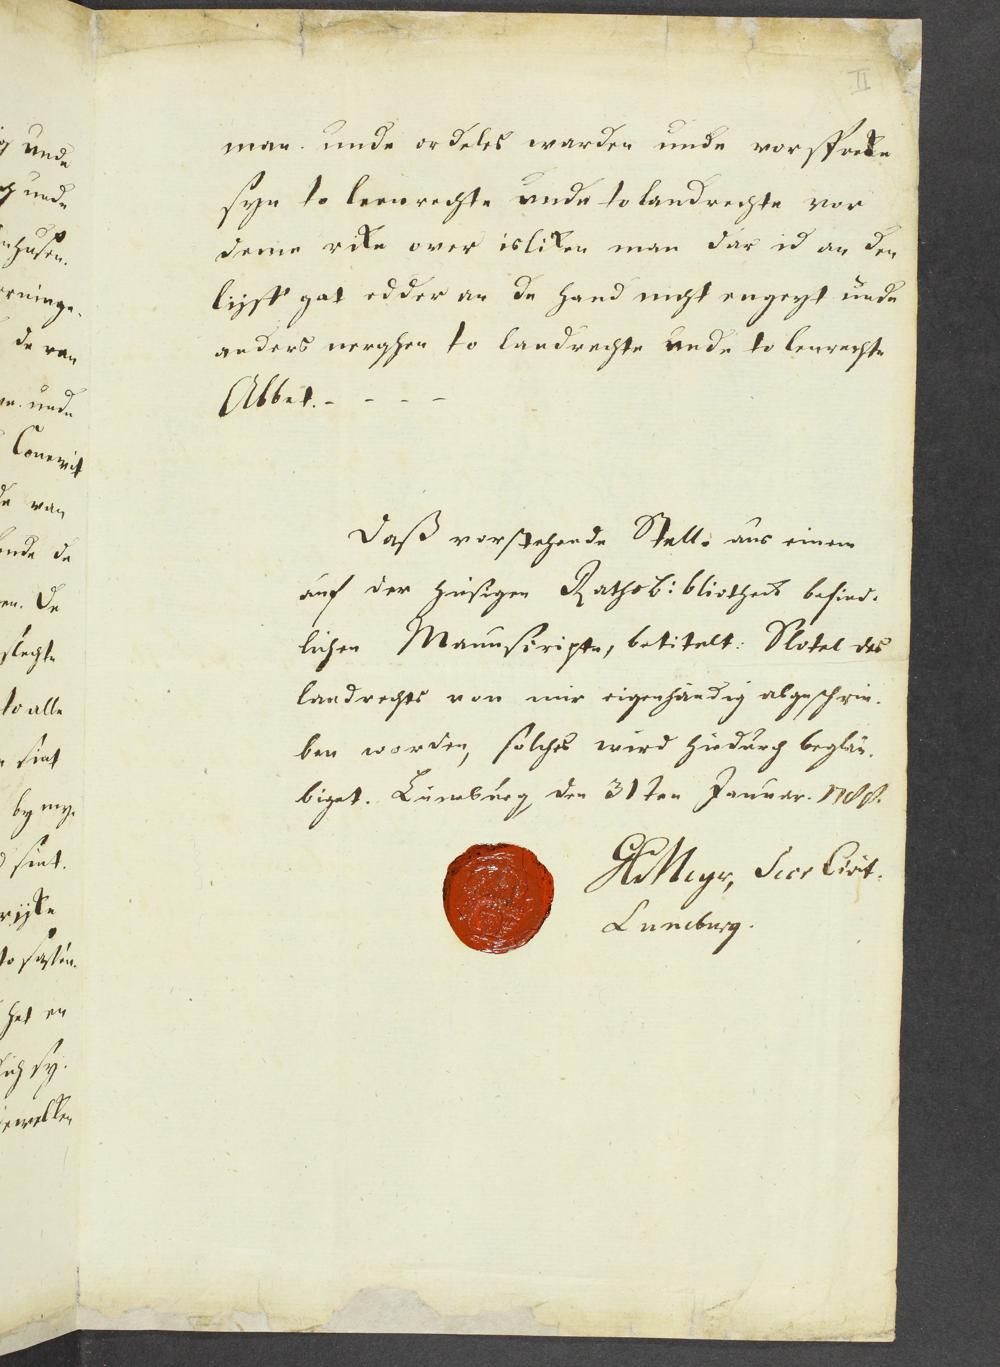 II
man. unde ordeles warden unde vorspreke
syn to leenrechte unde to landrechte vor
deme rike over isliken man dar id an den
lijff gat edder an de hand nicht engeyt unde
anders nerghen to landrechte unde to lenrechte
Abbet. - - - -
Daß vorstehende Stelle aus einem
auf der hiesigen Rathsbibliotheck befind-
lichen Manuscripte, betitelt: Slotel des
landrechts von mir eigenhändig abgeschrie-
ben worden, solches wird hiedurch beglau-
biget. Lüneburg den 31ten Januar.
Meyer, Secr Civit.
Luneburg.
unde
unde
nhusen.
de van
unde
de van
unde de
en. De
slechte
to alle
sint
by my.
sint.
rijke
to
het en
sy.